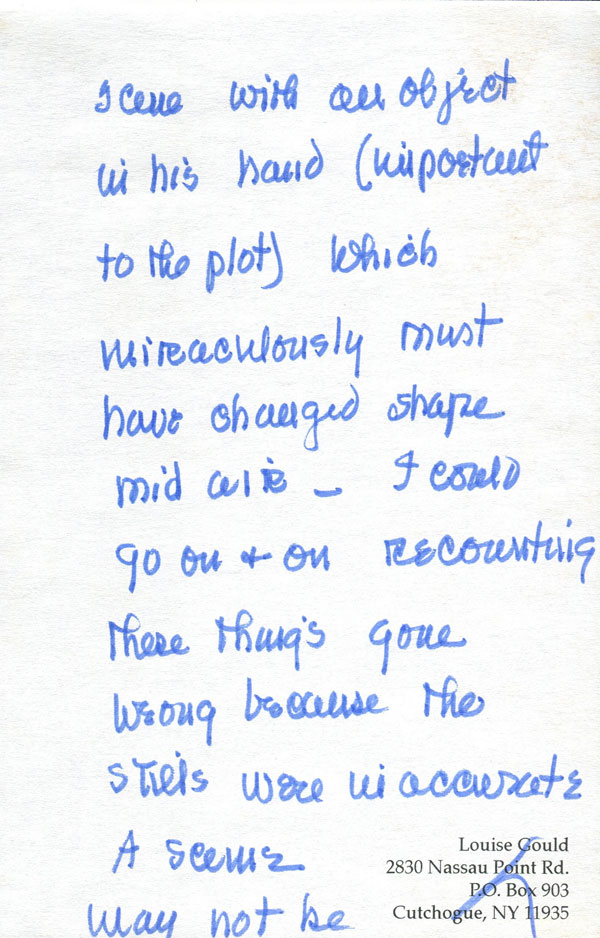 scene with an object
in his hand (important
to the plot) which
miraculously must
have changed shape
mid air – I could
go on + on recounting
these things gone
wrong because the
stills were inaccurate
A scene
may not be
Louise Gould
2830 Nassau Point Rd.
P.O. Box 903
Cutchogue, NY 11935